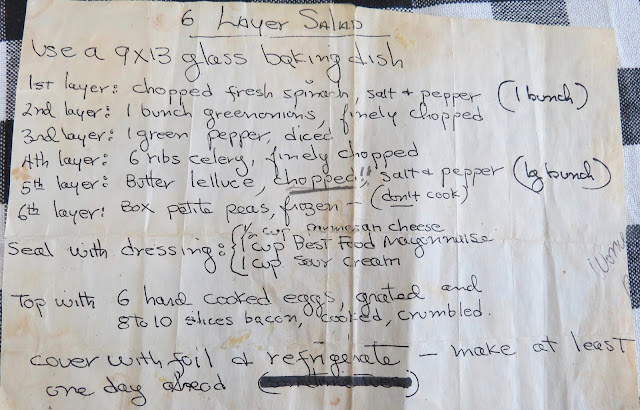 6 Layer Salad
Use a 9x13 glass baking dish
1st layer: chopped fresh spinach, salt + pepper (1 bunch)
2nd layer: 1 bunch greenonions, finely chopped
3rd layer: 1 green pepper, diced
4th layer: 6 ribs celery, finely chopped
5th layer: Butter lelluce, chopped, salt + pepper (lg bunch)
6th layer: Box petite peas, frozen - (don't cook)
Seal with dressing: { cup parmesan cheese
1 cup Best Food Mayonnaise
1 cup Sour Cream
Top with 6 hard cooked eggs, grated and
8 to 10 slices bacon, cooked, crumbled.
cover with foil & refrigerate - make at least
one day ahead